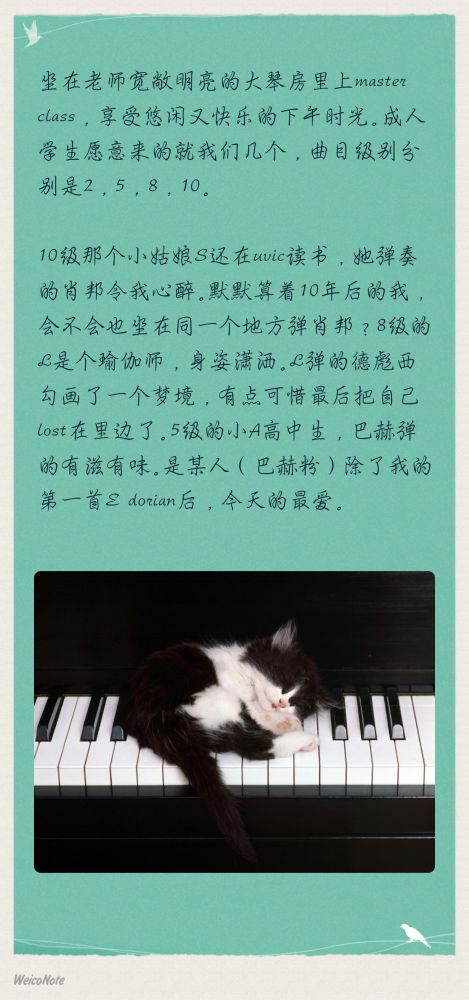 坐在老师宽敞明亮的大琴房里上master
class，享受悠闲又快乐的下午时光。成人
学生愿意来的就我们几个，曲目级别分
别是2，5，8，10。
10级那个小姑娘S还在uvic读书，她弹奏
的肖邦令我心醉。默默算着10年后的我，
会不会也坐在同一个地方弹肖邦？8级的
L是个瑜伽师，身姿潇洒。L弹的德彪西
勾画了一个梦境，有点可惜最后把自己
lost在里边了。5级的小A高中生，巴赫弹
的有滋有味。是某人（巴赫粉）除了我的
第一首E dorian后，今天的最爱。
WeicoNote